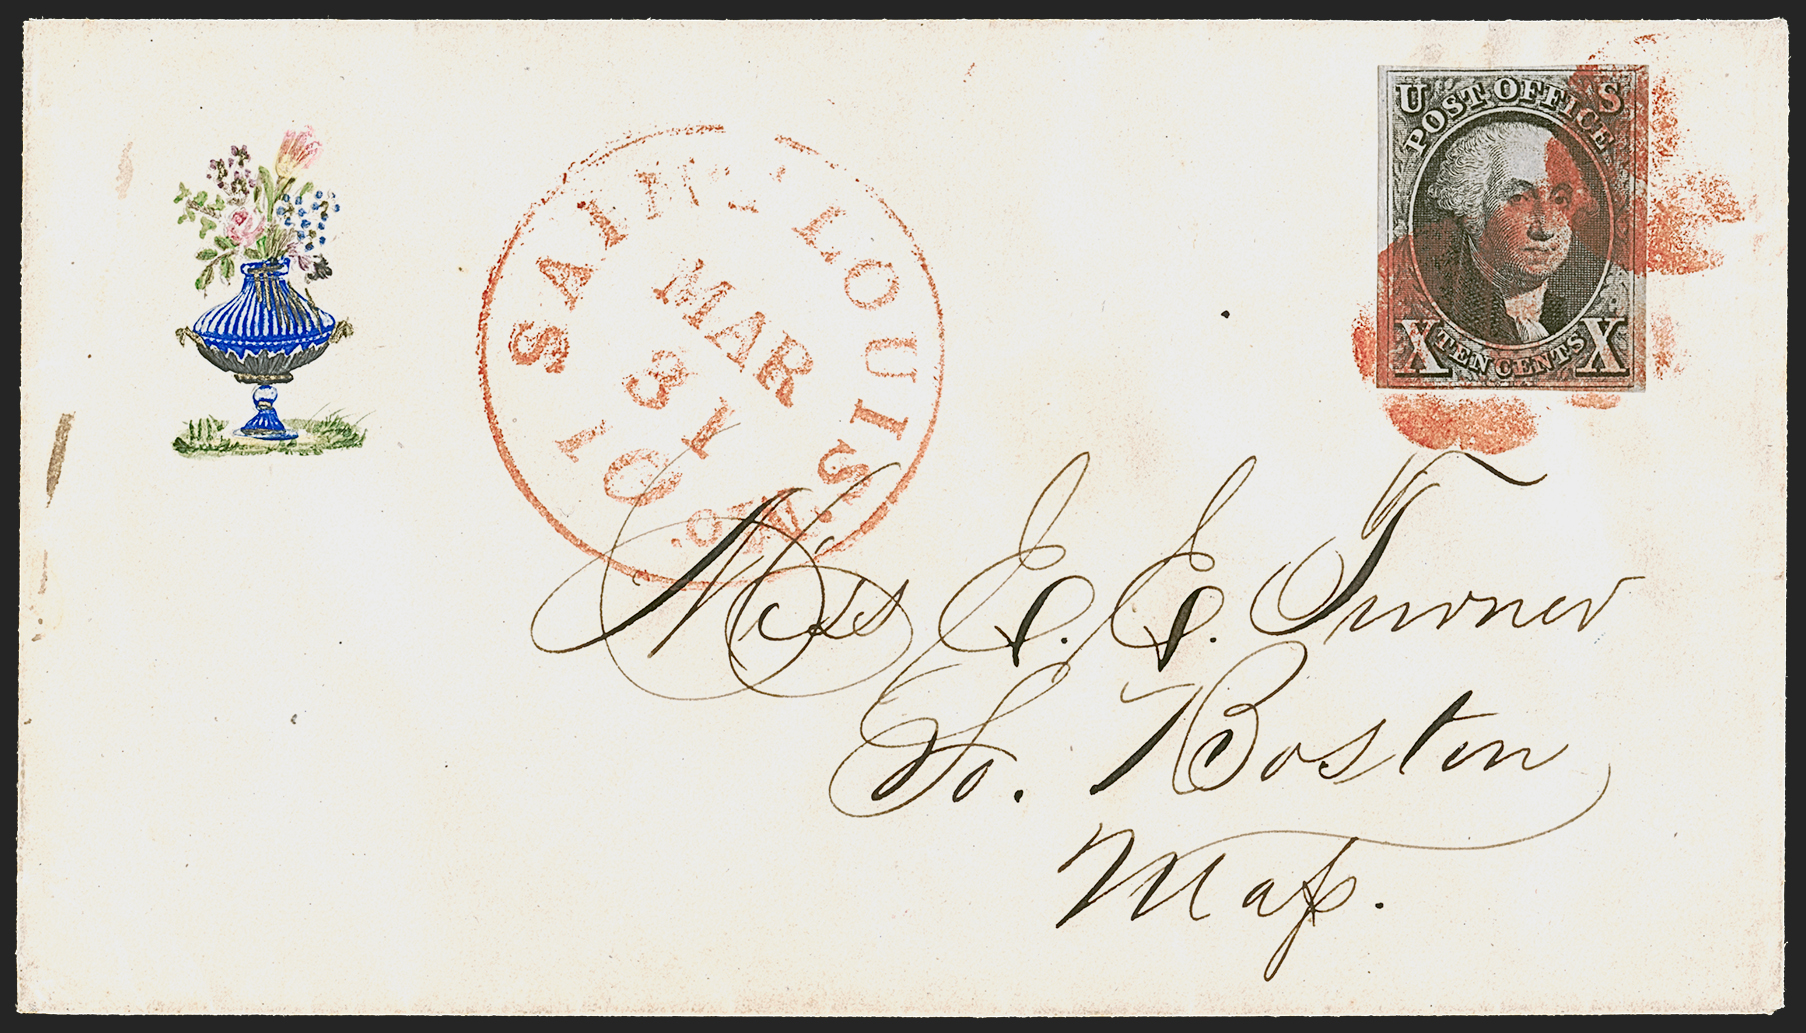 SAINT LOUIS. Mo.
MAR
31
10
U S
POST OFFICE
X TEN CENTS X
Miss E. E. Turner
So. Boston
Mass.